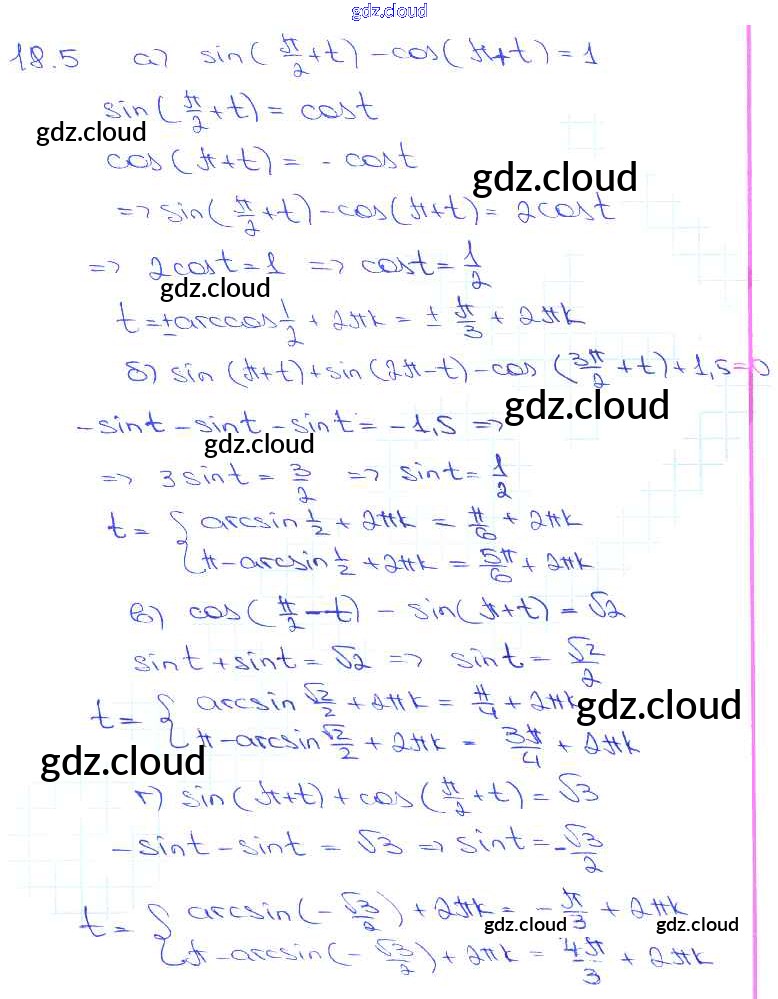 gdz.cloud
18.5 а) sin(π/2+t) - cos(π+t) = 1
sin(π/2+t) = cost
gdz.cloud
cos(π+t) = - cost
gdz.cloud
=> sin(π/2+t) - cos(π+t) = 2cost
=> 2cost = 1 => cost = 1/2
gdz.cloud
t = ±arccos 1/2 + 2πk = ± π/3 + 2πk
б) sin(π+t) + sin(2π-t) - cos(3π/2+t) + 1,5 = 0
gdz.cloud
-sint - sint - sint = -1,5 =>
gdz.cloud
=> 3sint = 3/2 => sint = 1/2
t = { arcsin 1/2 + 2πk = π/6 + 2πk
π - arcsin 1/2 + 2πk = 5π/6 + 2πk
в) cos(π/2 - t) - sin(π+t) = √2
sint + sint = √2 => sint = √2/2
t = { arcsin √2/2 + 2πk = π/4 + 2πk
gdz.cloud
π - arcsin √2/2 + 2πk = 3π/4 + 2πk
gdz.cloud
г) sin(π+t) + cos(π/2+t) = √3
-sint - sint = √3 => sint = -√3/2
t = { arcsin(-√3/2) + 2πk = -π/3 + 2πk
gdz.cloud gdz.cloud
π - arcsin(-√3/2) + 2πk = 4π/3 + 2πk